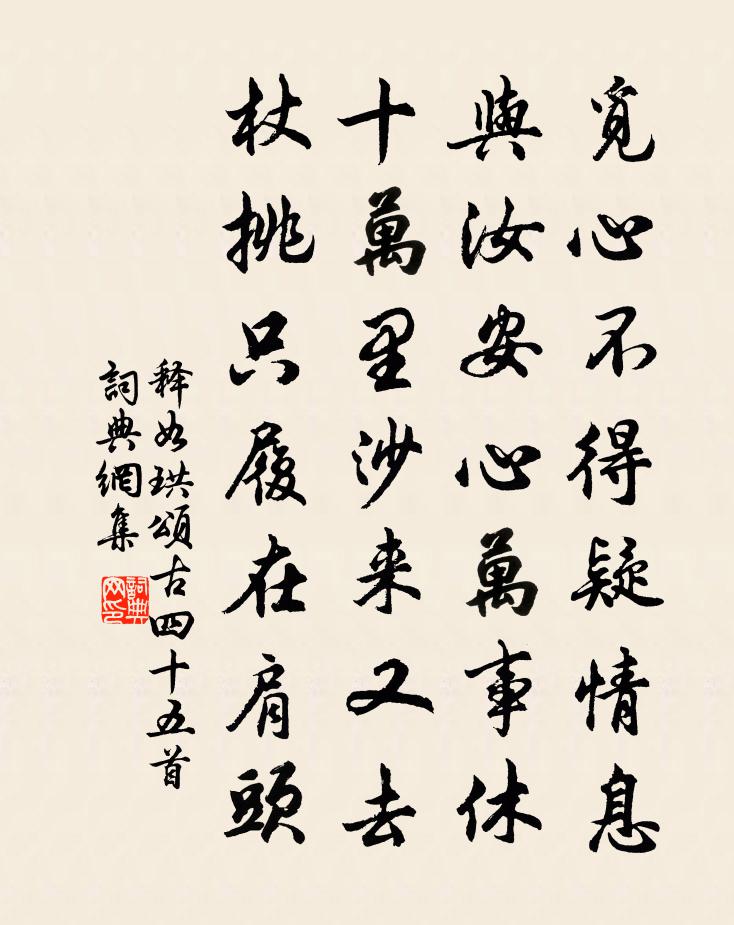 覓心不得疑情息
與汝安心萬事休
十萬里沙来又去
杖挑只履在肩頭
释如珙頌古四十五首
詞典網集
詞典网印